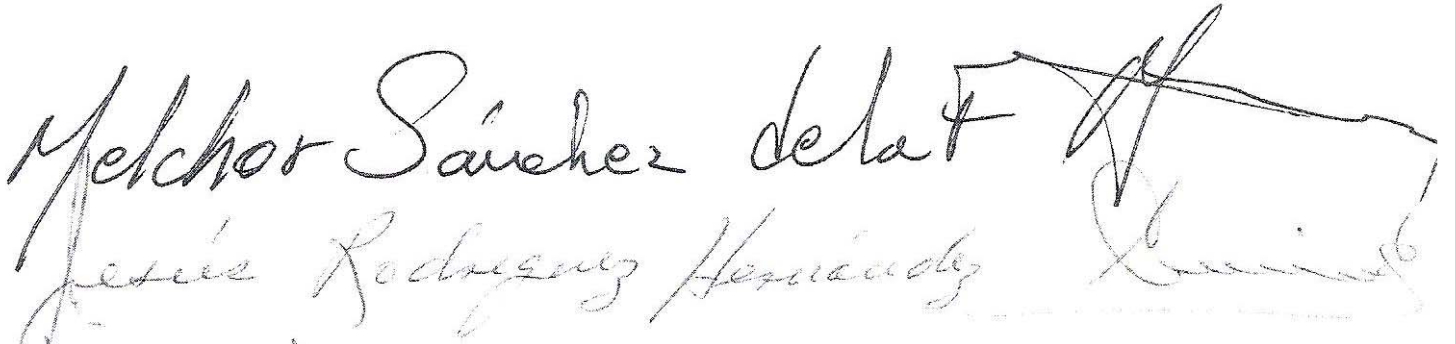 Melchor Sánchez de la F
Jesús Rodríguez Hernández